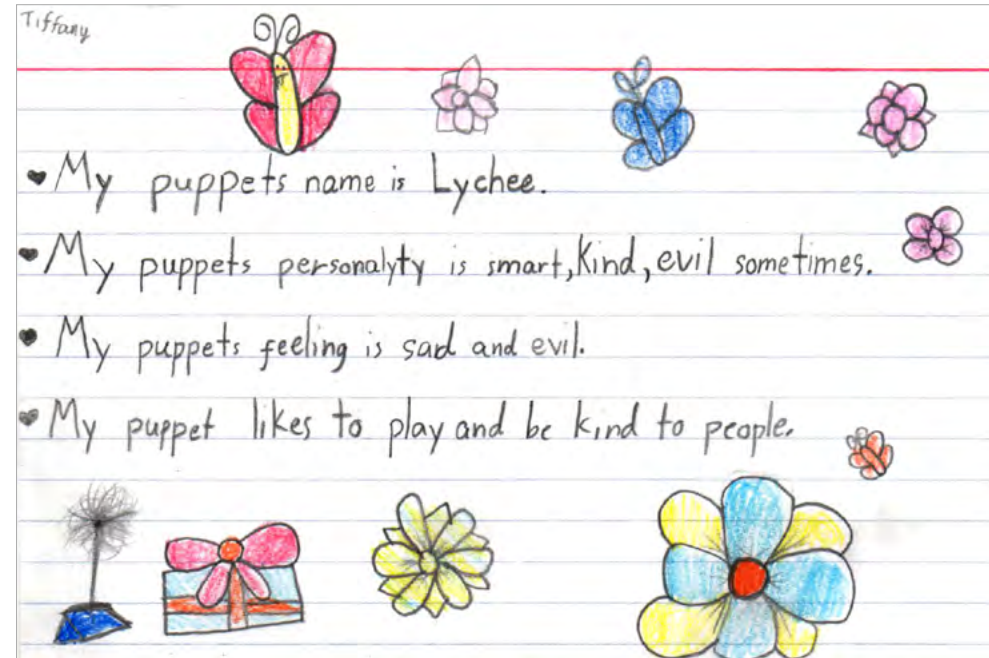 Tiffany
♥ My puppets name is Lychee.
♥ My puppets personalyty is smart, kind, evil sometimes.
♥ My puppets feeling is sad and evil.
♥ My puppet likes to play and be kind to people.